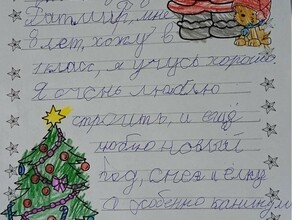 Ватлир, мне
8 лет, хожу в
1 класс, я учусь хорошо.
Я очень люблю
строить, и ещё
люблю новый
год, снег и ёлку
а особенно каникулы